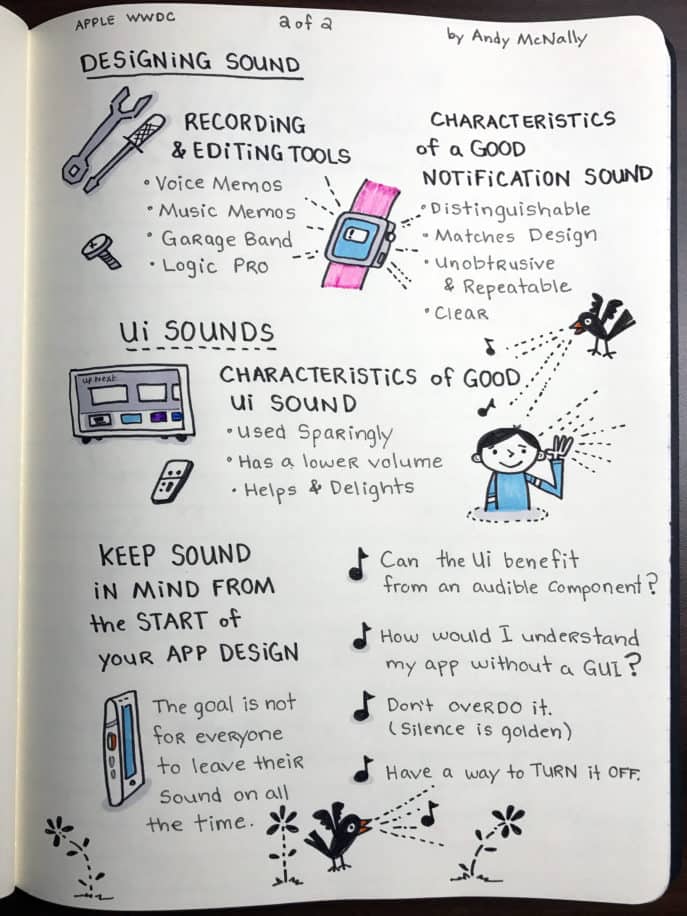 APPLE WWDC
2 of 2
by Andy McNally
DESIGNING SOUND
RECORDING
& EDITING TOOLS
• Voice Memos
• Music Memos
• Garage Band
• Logic PRO
CHARACTERISTICS
of a GOOD
NOTIFICATION SOUND
• Distinguishable
• Matches Design
• Unobtrusive
& Repeatable
• Clear
Ui SOUNDS
up Next
CHARACTERISTICS of GOOD
Ui SOUND
• Used Sparingly
• Has a lower volume
• Helps & Delights
KEEP SOUND
iN MiND FROM
the START of
your APP DESIGN
The goal is not
for everyone
to leave their
Sound on all
the time.
Can the Ui benefit
from an audible component?
How would I understand
my app without a GUI?
Don't OVERDO it.
(Silence is golden)
Have a way to TURN it OFF.